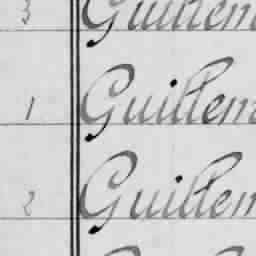 3 Guillem
1 Guillem
2 Guillem